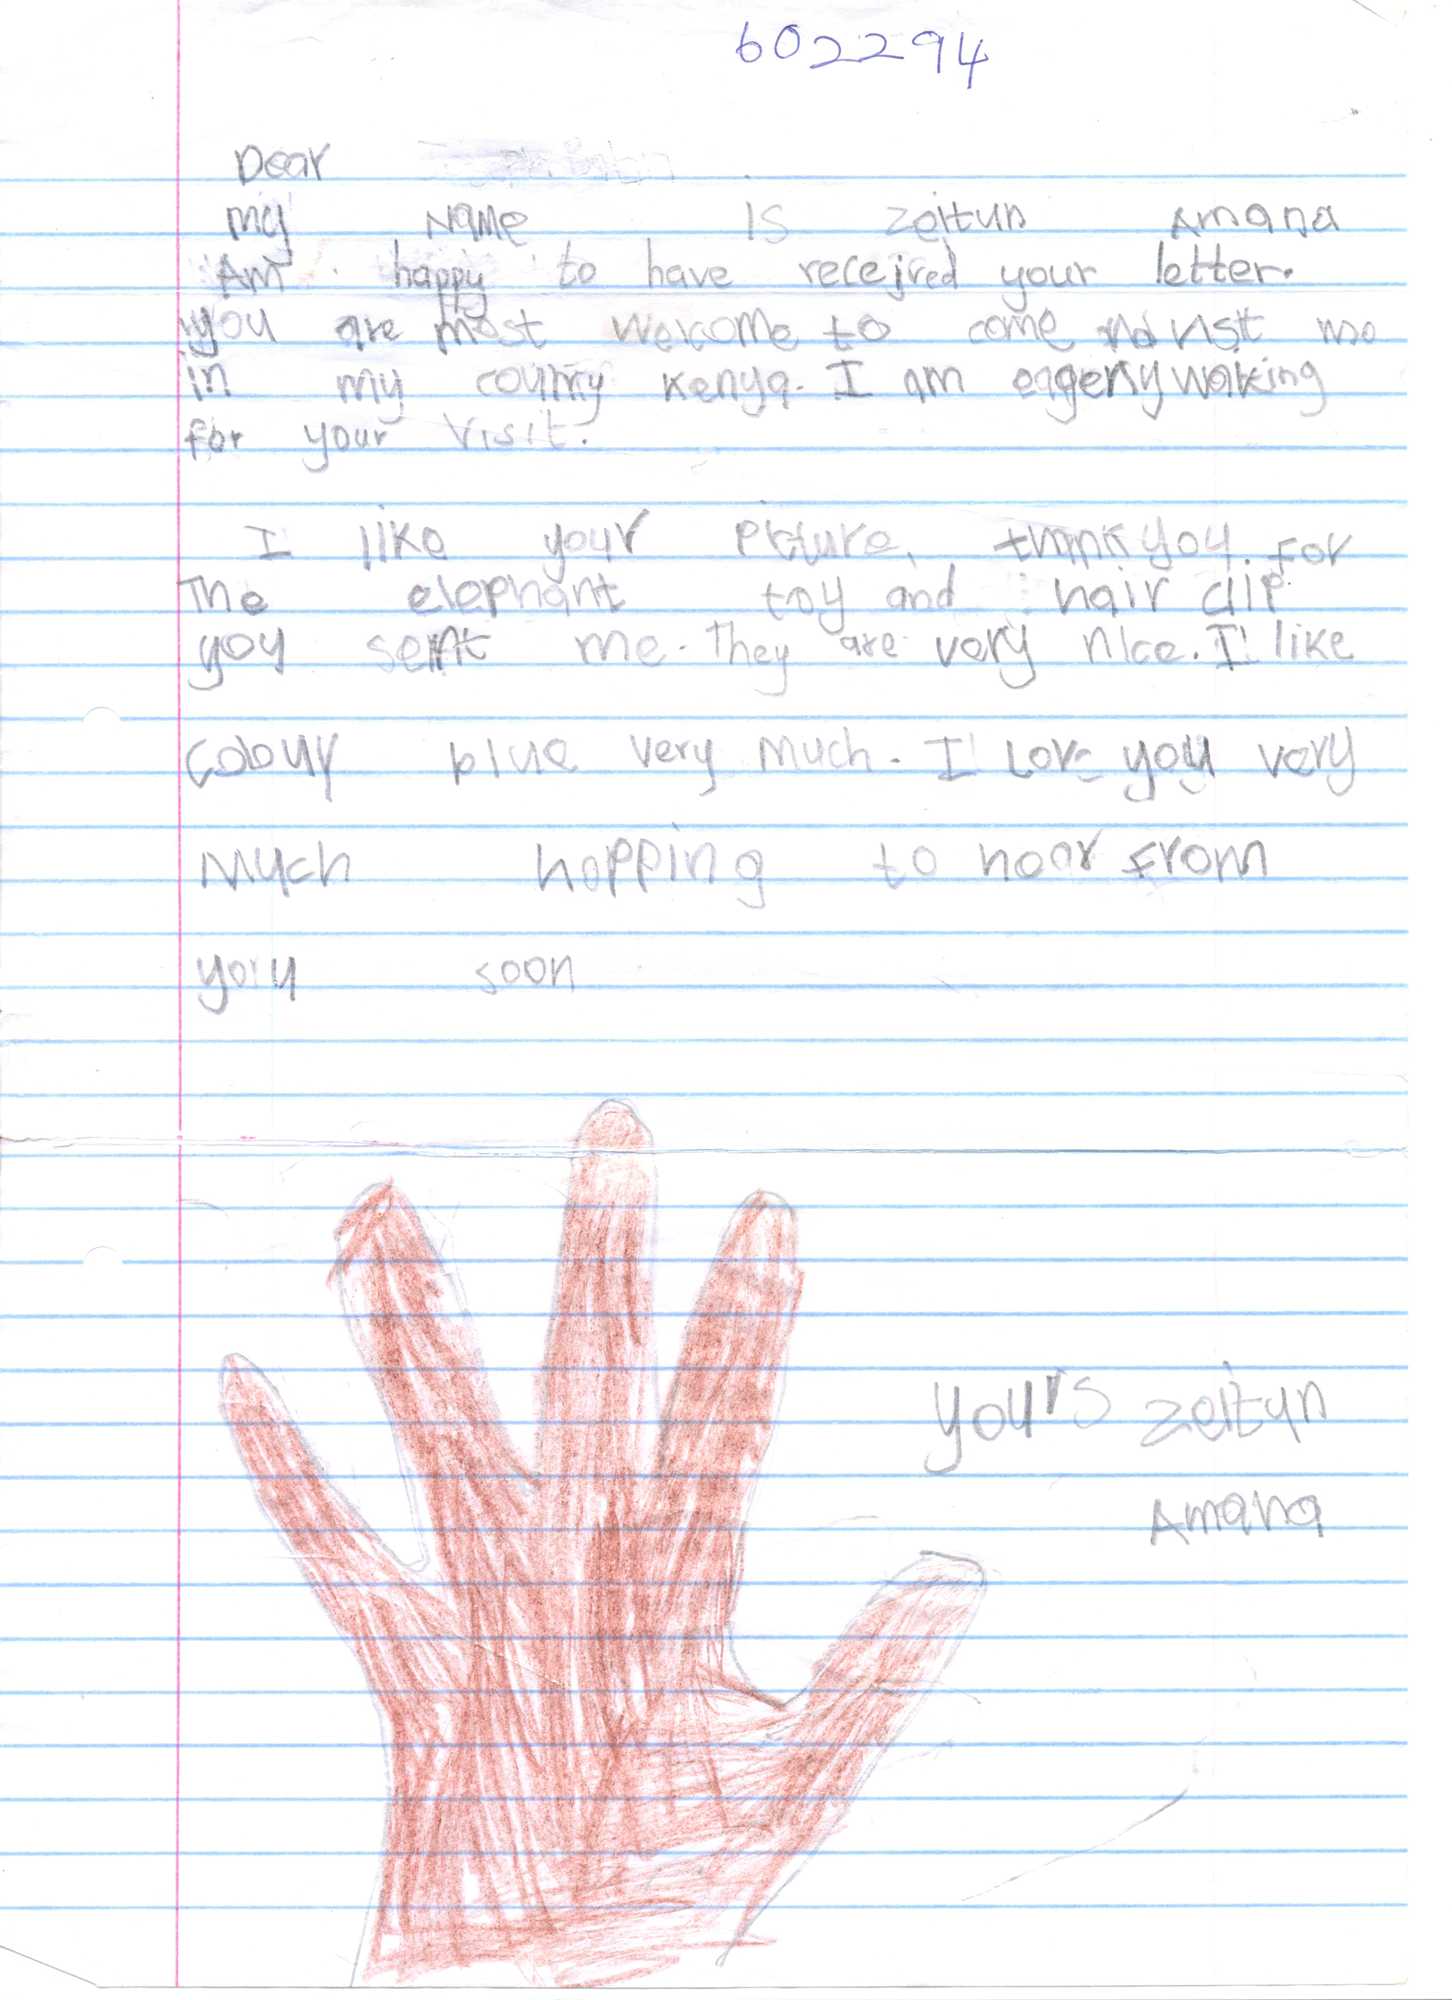 602294
Dear
my Name is Zeitun Amana
Am happy to have received your letter.
you are most welcome to come visit me
in my country Kenya. I am eagerly waiting
for your visit.
I like your Picture, thank you for
The elephant toy and hair clip
you sent me. They are very nice. I like
Colour blue very much. I Love you very
Much hopping to hear from
you soon
yours Zeitun
Amana